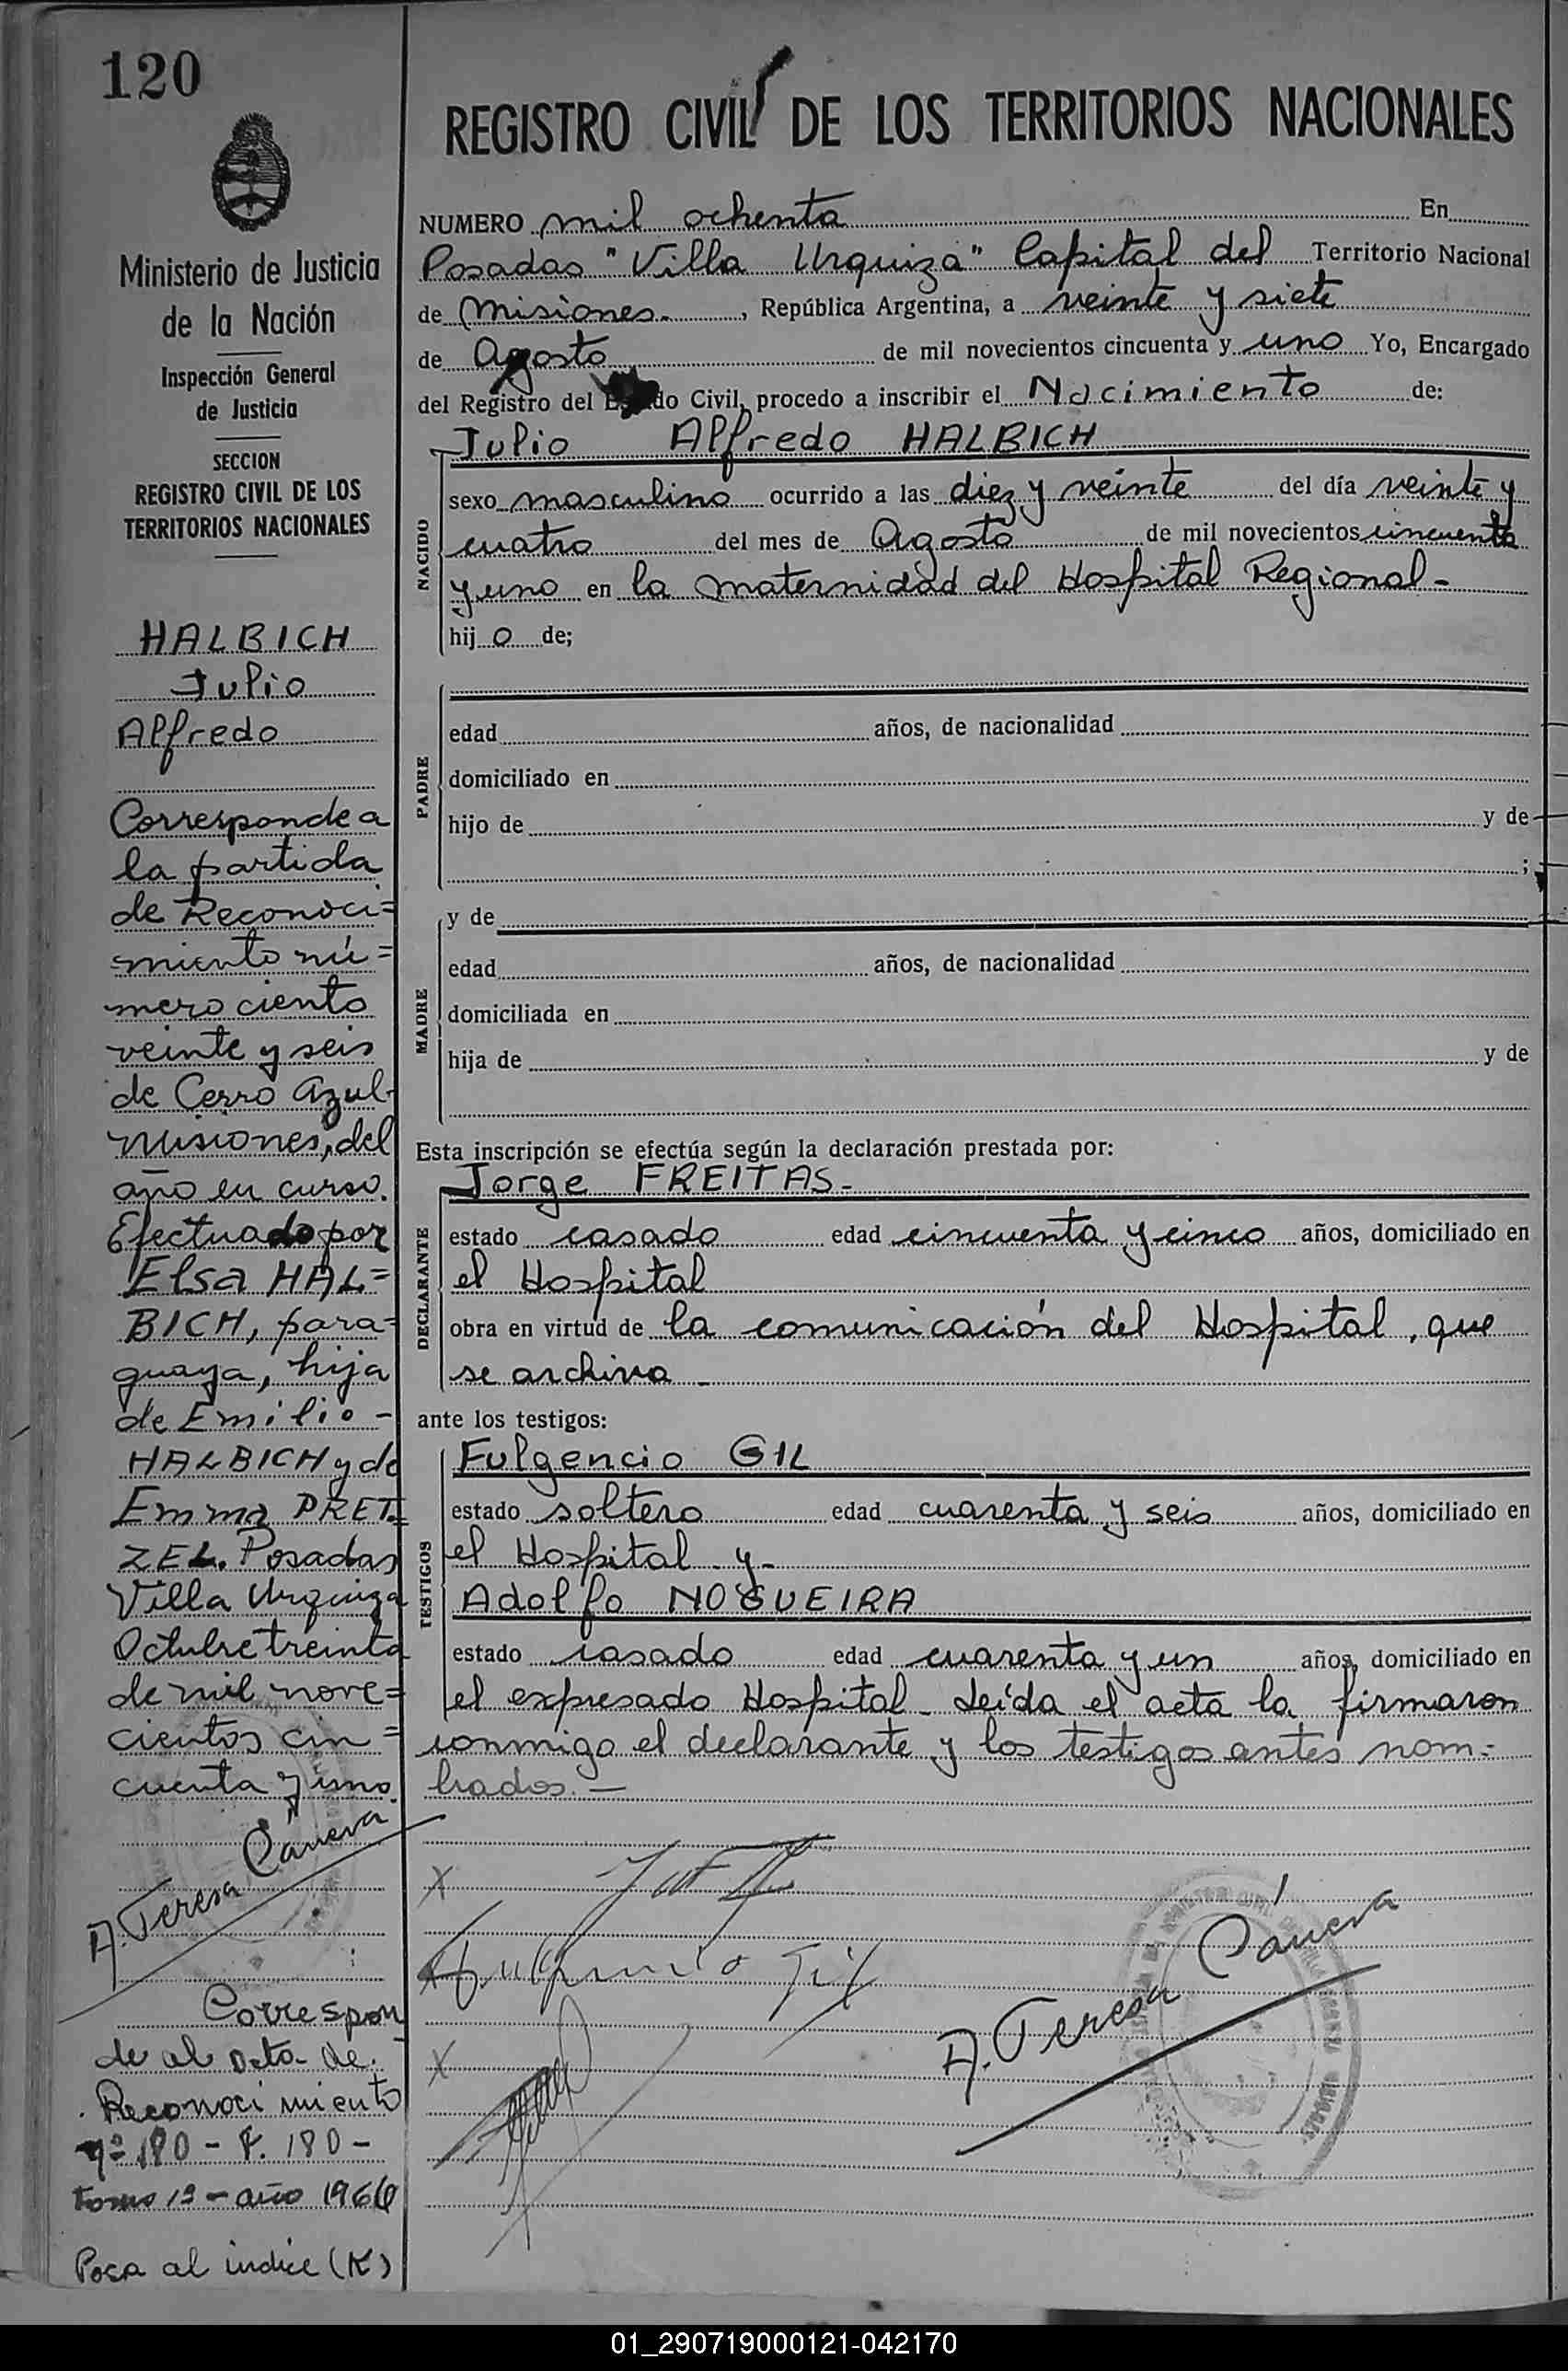 120
Ministerio de Justicia
de la Nación
Inspección General
de Justicia
SECCION
REGISTRO CIVIL DE LOS
TERRITORIOS NACIONALES
HALBICH
Julio
Alfredo
Corresponde a
la partida
de Reconoci=
miento nú=
mero ciento
veinte y seis
de Cerro Azul-
Misiones, del
año en curso.
Efectuado por
Elsa HAL=
BICH, para=
guaya, hija
de Emilio -
HALBICH y de
Emma PRET=
ZEL. Posadas
Villa Urquiza
Octubre treinta
de mil nove=
cientos cin=
cuenta y uno.
A. Teresa Cáneva
Correspon
de al acta de
Reconocimiento
nº 180 - F. 180 -
tomo 1º - año 1966
Pasa al indice (K)
REGISTRO CIVIL DE LOS TERRITORIOS NACIONALES
NUMERO mil ochenta En
Posadas "Villa Urquiza" Capital del Territorio Nacional
de Misiones.- , República Argentina, a veinte y siete
de Agosto de mil novecientos cincuenta y uno Yo, Encargado
del Registro del Estado Civil, procedo a inscribir el Nacimiento de:
Julio Alfredo HALBICH
NACIDO
sexo masculino ocurrido a las diez y veinte del día veinte y
cuatro del mes de Agosto de mil novecientos cincuenta
y uno en la maternidad del Hospital Regional -
hijo de;
PADRE
edad años, de nacionalidad
domiciliado en
hijo de y de
;
MADRE
y de
edad años, de nacionalidad
domiciliada en
hija de y de
Esta inscripción se efectúa según la declaración prestada por:
Jorge FREITAS-
DECLARANTE
estado casado edad cincuenta y cinco años, domiciliado en
el Hospital
obra en virtud de la comunicación del Hospital, que
se archiva -
ante los testigos:
TESTIGOS
Fulgencio GIL
estado soltero edad cuarenta y seis años, domiciliado en
el Hospital y-
Adolfo NOGUEIRA
estado casado edad cuarenta y un años, domiciliado en
el expresado Hospital - Leída el acta la firmaron
conmigo el declarante y los testigos antes nom=
brados.-
X
Fulgencio Gil
X
A. Teresa Cáneva
01_290719000121-042170